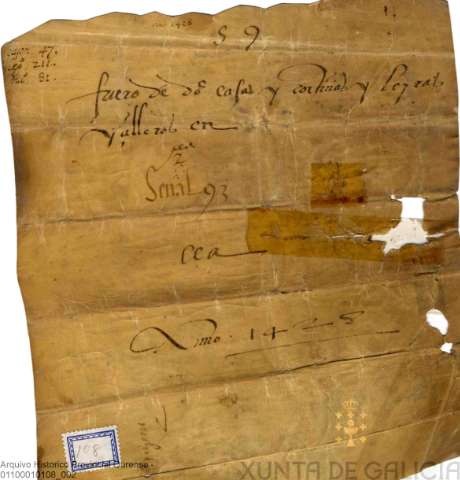 año 1428
59
47.
211.
81
fuero de dos casas y cortiñas y leyras
y alleros en
cea
Señal 93
cea
Anno. 1428
108
Arquivo Histórico Provincial Ourense -
01100010108_002
XUNTA DE GALICIA